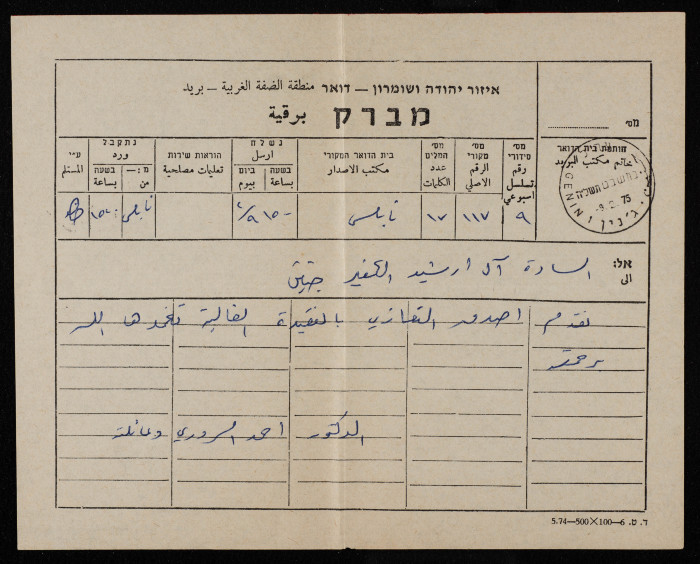 איזור יהודה ושומרון — דואר منطقة الضفة الغربية — بريد
מברק برقية
מס׳
חותמת בית הדואר
خاتم مكتب البريد
GENIN
ג׳נין
-9. 2. 75
מס׳ סידורי رقم تسلسل اسبوعي
מס׳ מקורי الرقم الاصلي
מס׳ המלים عدد الكلمات
בית הדואר המקורי مكتب الاصدار
נשלח ارسل
בשעה بساعة
ביום بيوم
הוראות שירות تعليمات مصلحية
נתקבל ورد
בשעה بساعة
מ:— من
ע״י المستلم
٩ ١١٧ ١٧ نابلس ١٥٠٠ ٩/٢ نابلس
אל: الى
السادة آل ارشيد الكفير جنين
نقدم اصدق التعازي بالفقيدة الغالية تغمدها الله
برحمته
الدكتور احمد السروري وعائلته
ד. ט. 6—100×500—5.74